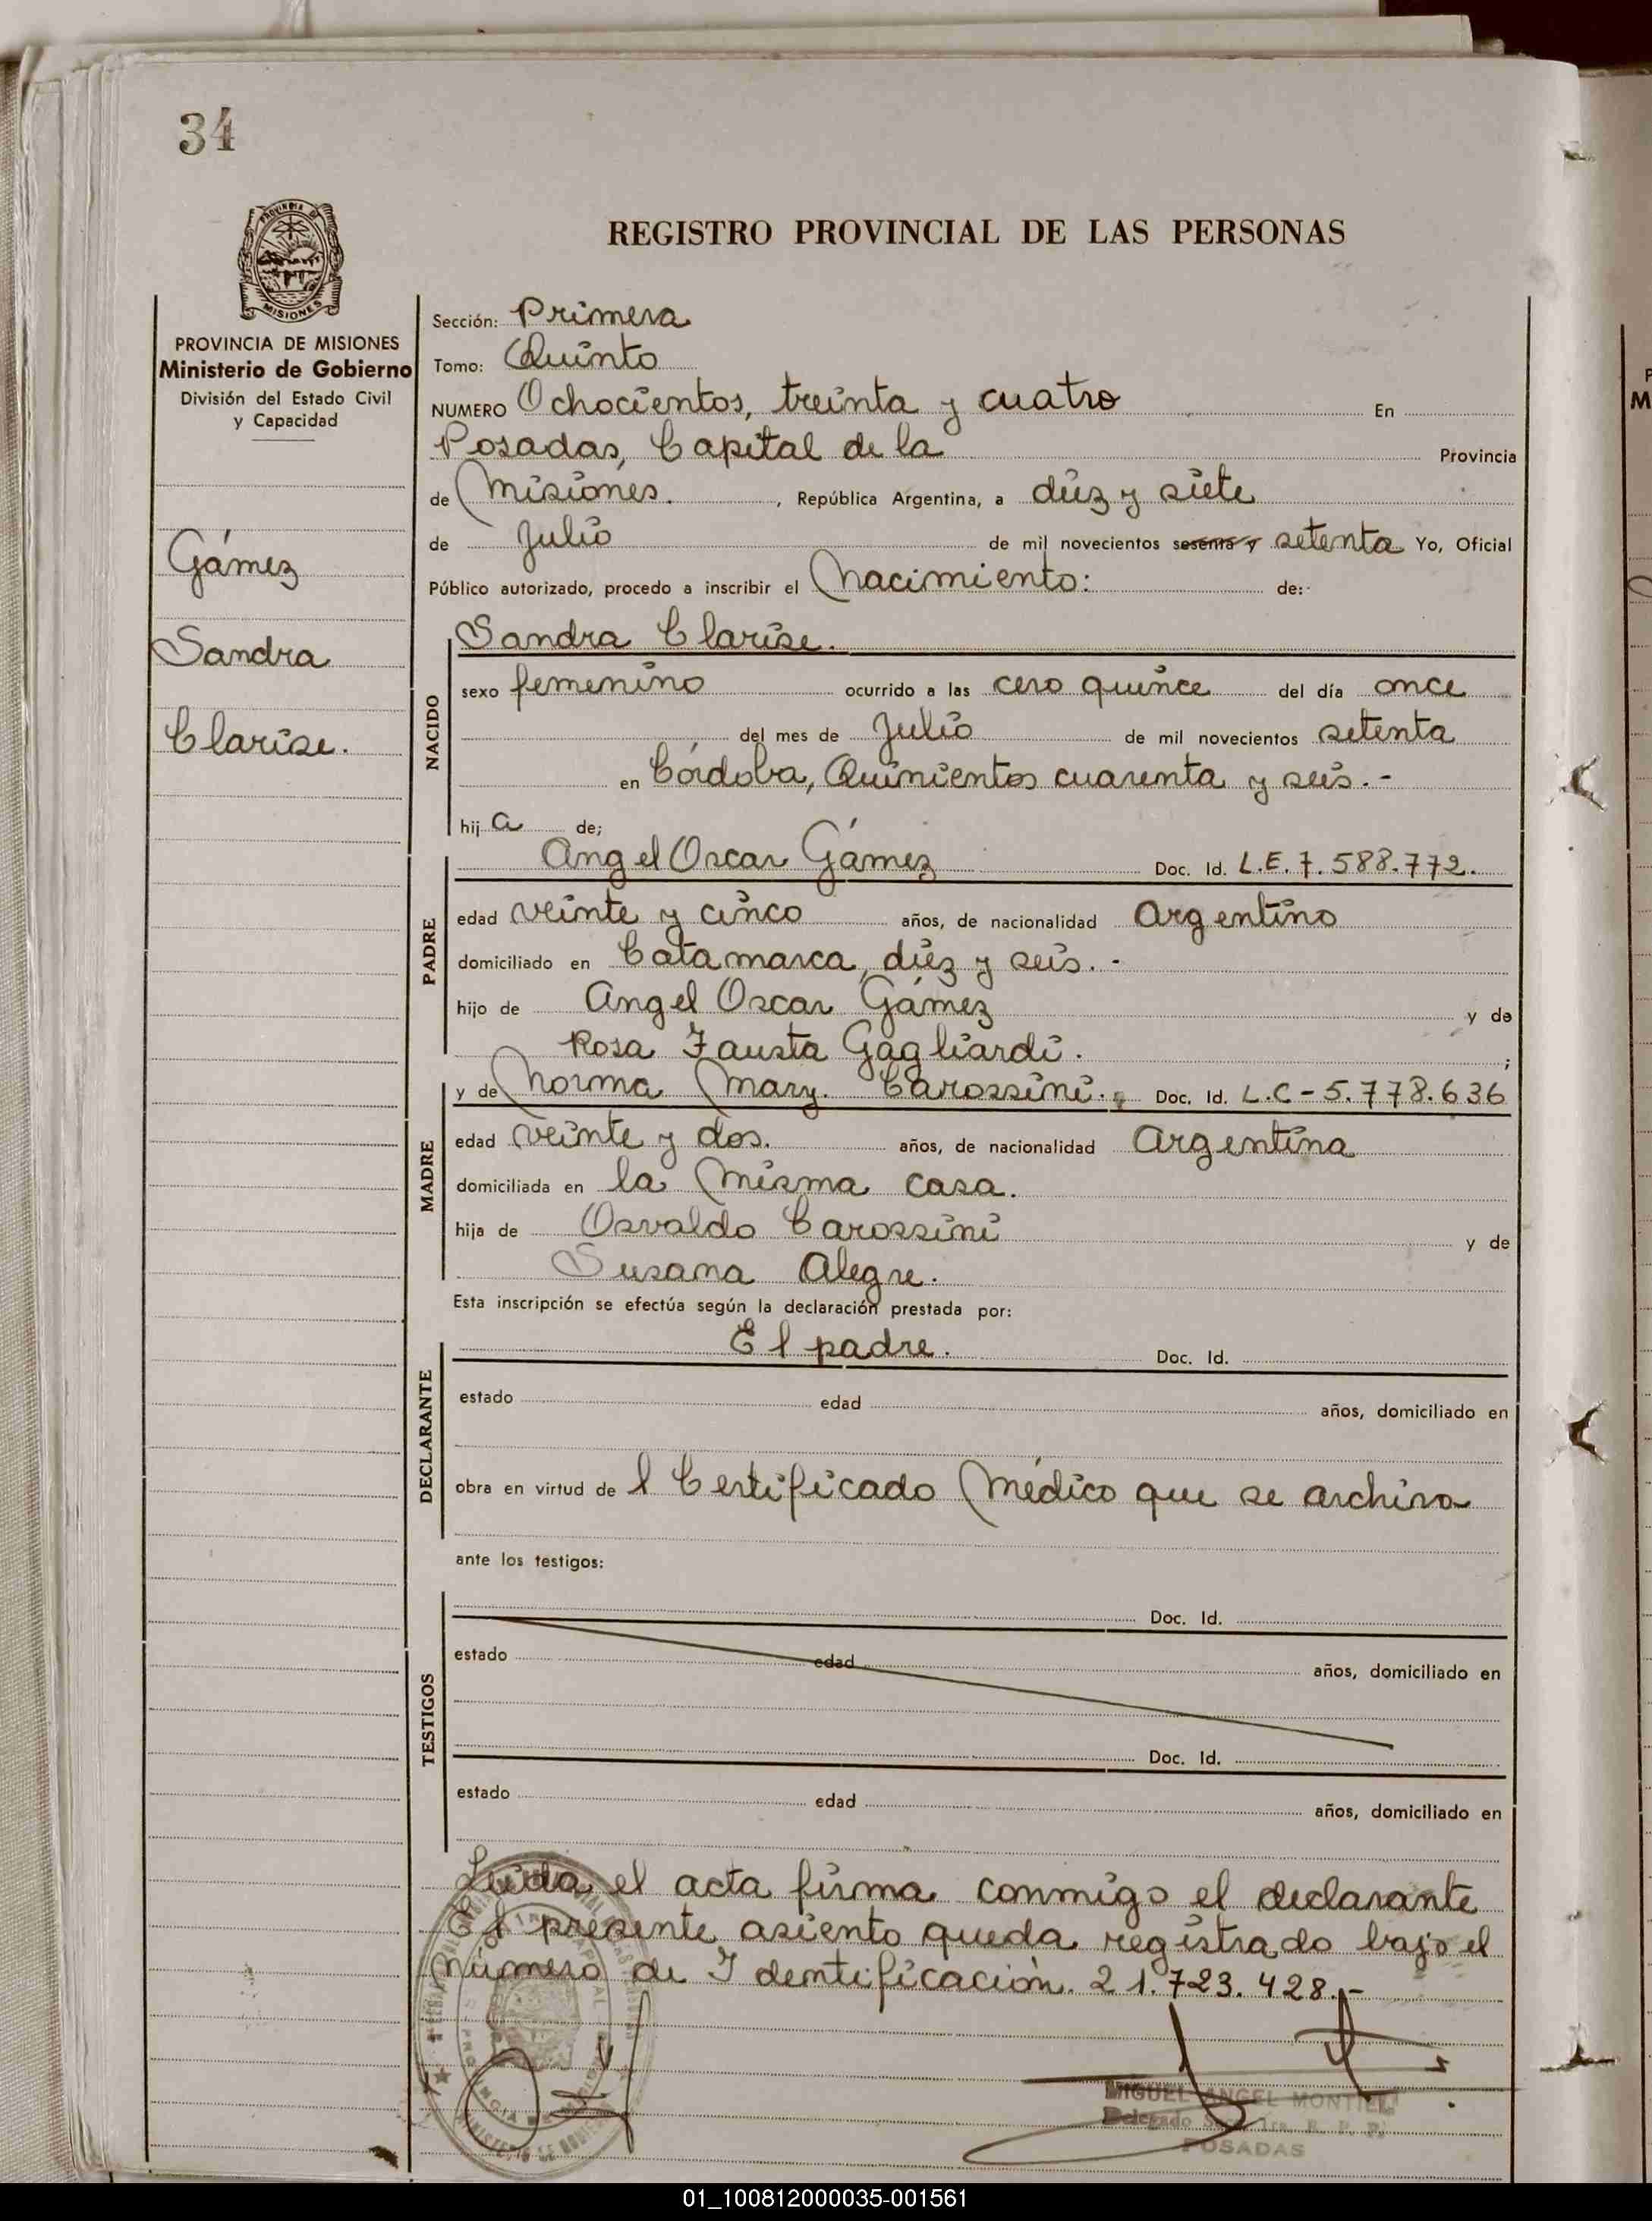 34
PROVINCIA DE
MISIONES
PROVINCIA DE MISIONES
Ministerio de Gobierno
División del Estado Civil
y Capacidad
Gámez
Sandra
Clarise.
REGISTRO PROVINCIAL DE LAS PERSONAS
Sección: Primera
Tomo: Quinto
NUMERO Ochocientos, treinta y cuatro En
Posadas, Capital de la Provincia
de Misiones. , República Argentina, a diez y siete
de Julio de mil novecientos sesenta y setenta Yo, Oficial
Público autorizado, procedo a inscribir el Nacimiento: de:
NACIDO
Sandra Clarise.
sexo femenino ocurrido a las cero quince del día once
del mes de Julio de mil novecientos setenta
en Córdoba, Quinientos cuarenta y seis.-
hij a de;
PADRE
Angel Oscar Gámez Doc. Id. L.E. 7.588.772.
edad veinte y cinco años, de nacionalidad Argentino
domiciliado en Catamarca, diez y seis.-
hijo de Angel Oscar Gámez y de
Rosa Fausta Gagliardi. ;
MADRE
y de Norma Mary. Carossini. Doc. Id. L.C-5.778.636
edad veinte y dos. años, de nacionalidad Argentina
domiciliada en la misma casa.
hija de Osvaldo Carossini y de
Susana Alegre.
Esta inscripción se efectúa según la declaración prestada por:
DECLARANTE
El padre. Doc. Id.
estado edad años, domiciliado en
obra en virtud de l Certificado Médico que se archiva
ante los testigos:
TESTIGOS
Doc. Id.
estado edad años, domiciliado en
Doc. Id.
estado edad años, domiciliado en
Leida el acta firma conmigo el declarante
El presente asiento queda registrado bajo el
número de Identificación. 21.723.428.-
MIGUEL ANGEL MONTIEL
Delegado Secc. 1ra. R. P. P.
POSADAS
01_100812000035-001561